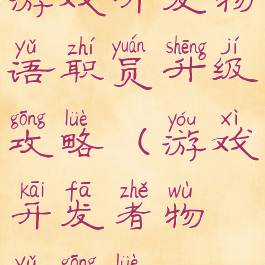 游戏开发物
yǔ zhí yuán shēng jí
语职员升级
gōng lüè yóu xì
攻略（游戏
kāi fā zhě wù
开发者物
yǔ gōng lüè